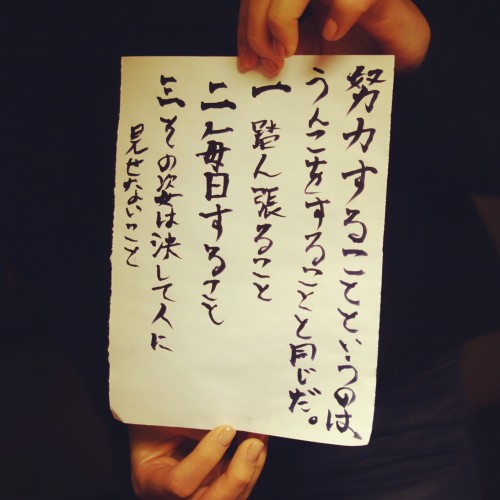 努力することというのは、
うんこをすることと同じだ。
一 踏ん張ること
二 毎日すること
三 その姿は決して人に
見せないこと